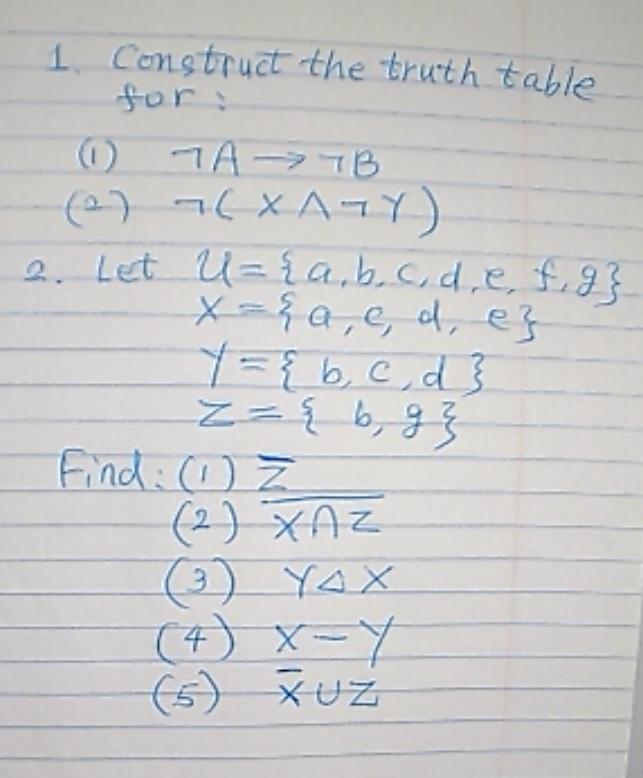 1. Construct the truth table
for :
(1) ¬A → ¬B
(2) ¬( X ∧ ¬Y )
2. Let U = {a, b, c, d, e, f, g}
X = {a, c, d, e}
Y = { b, c, d }
Z = { b, g }
Find : (1) Z̅
(2) X̅ ̅∩̅ ̅Z̅
(3) Y △ X
(4) X − Y
(5) X̅ ∪ Z